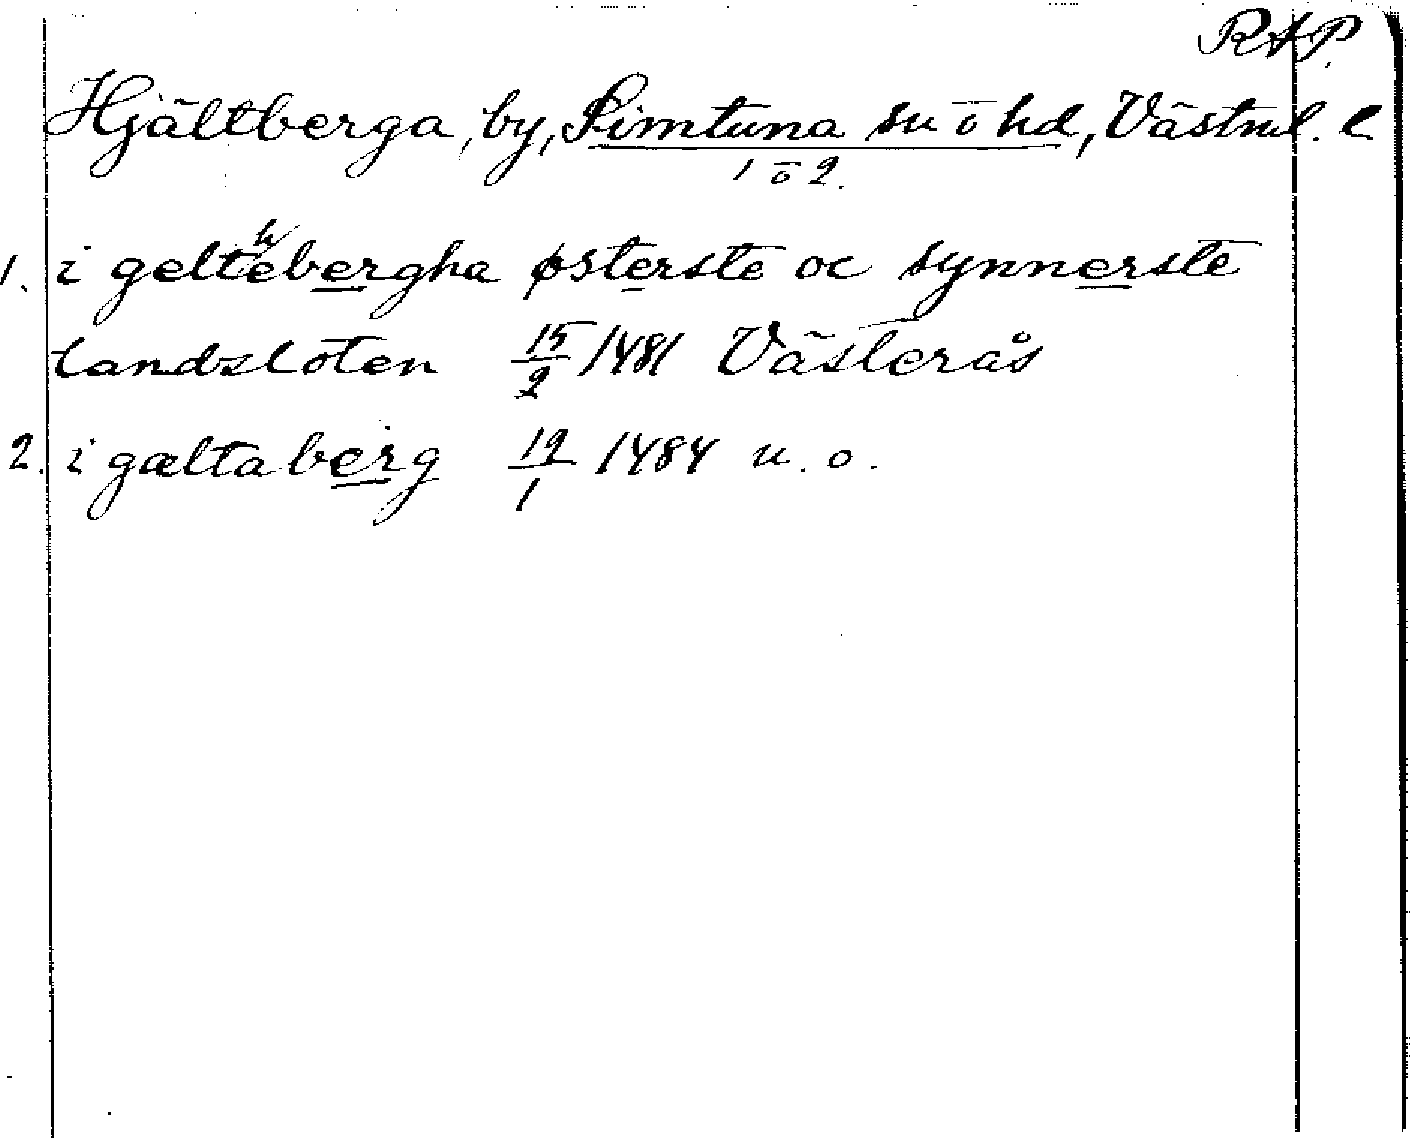 RAP.
Hjältberga, by, Simtuna sn o hd, Västml. l
1 o 2.
1. i gelthebergha østerste oc synnerste
landzloten 15/2 1481 Västerås
2. i gæltaberg 19/1 1484 u. o.